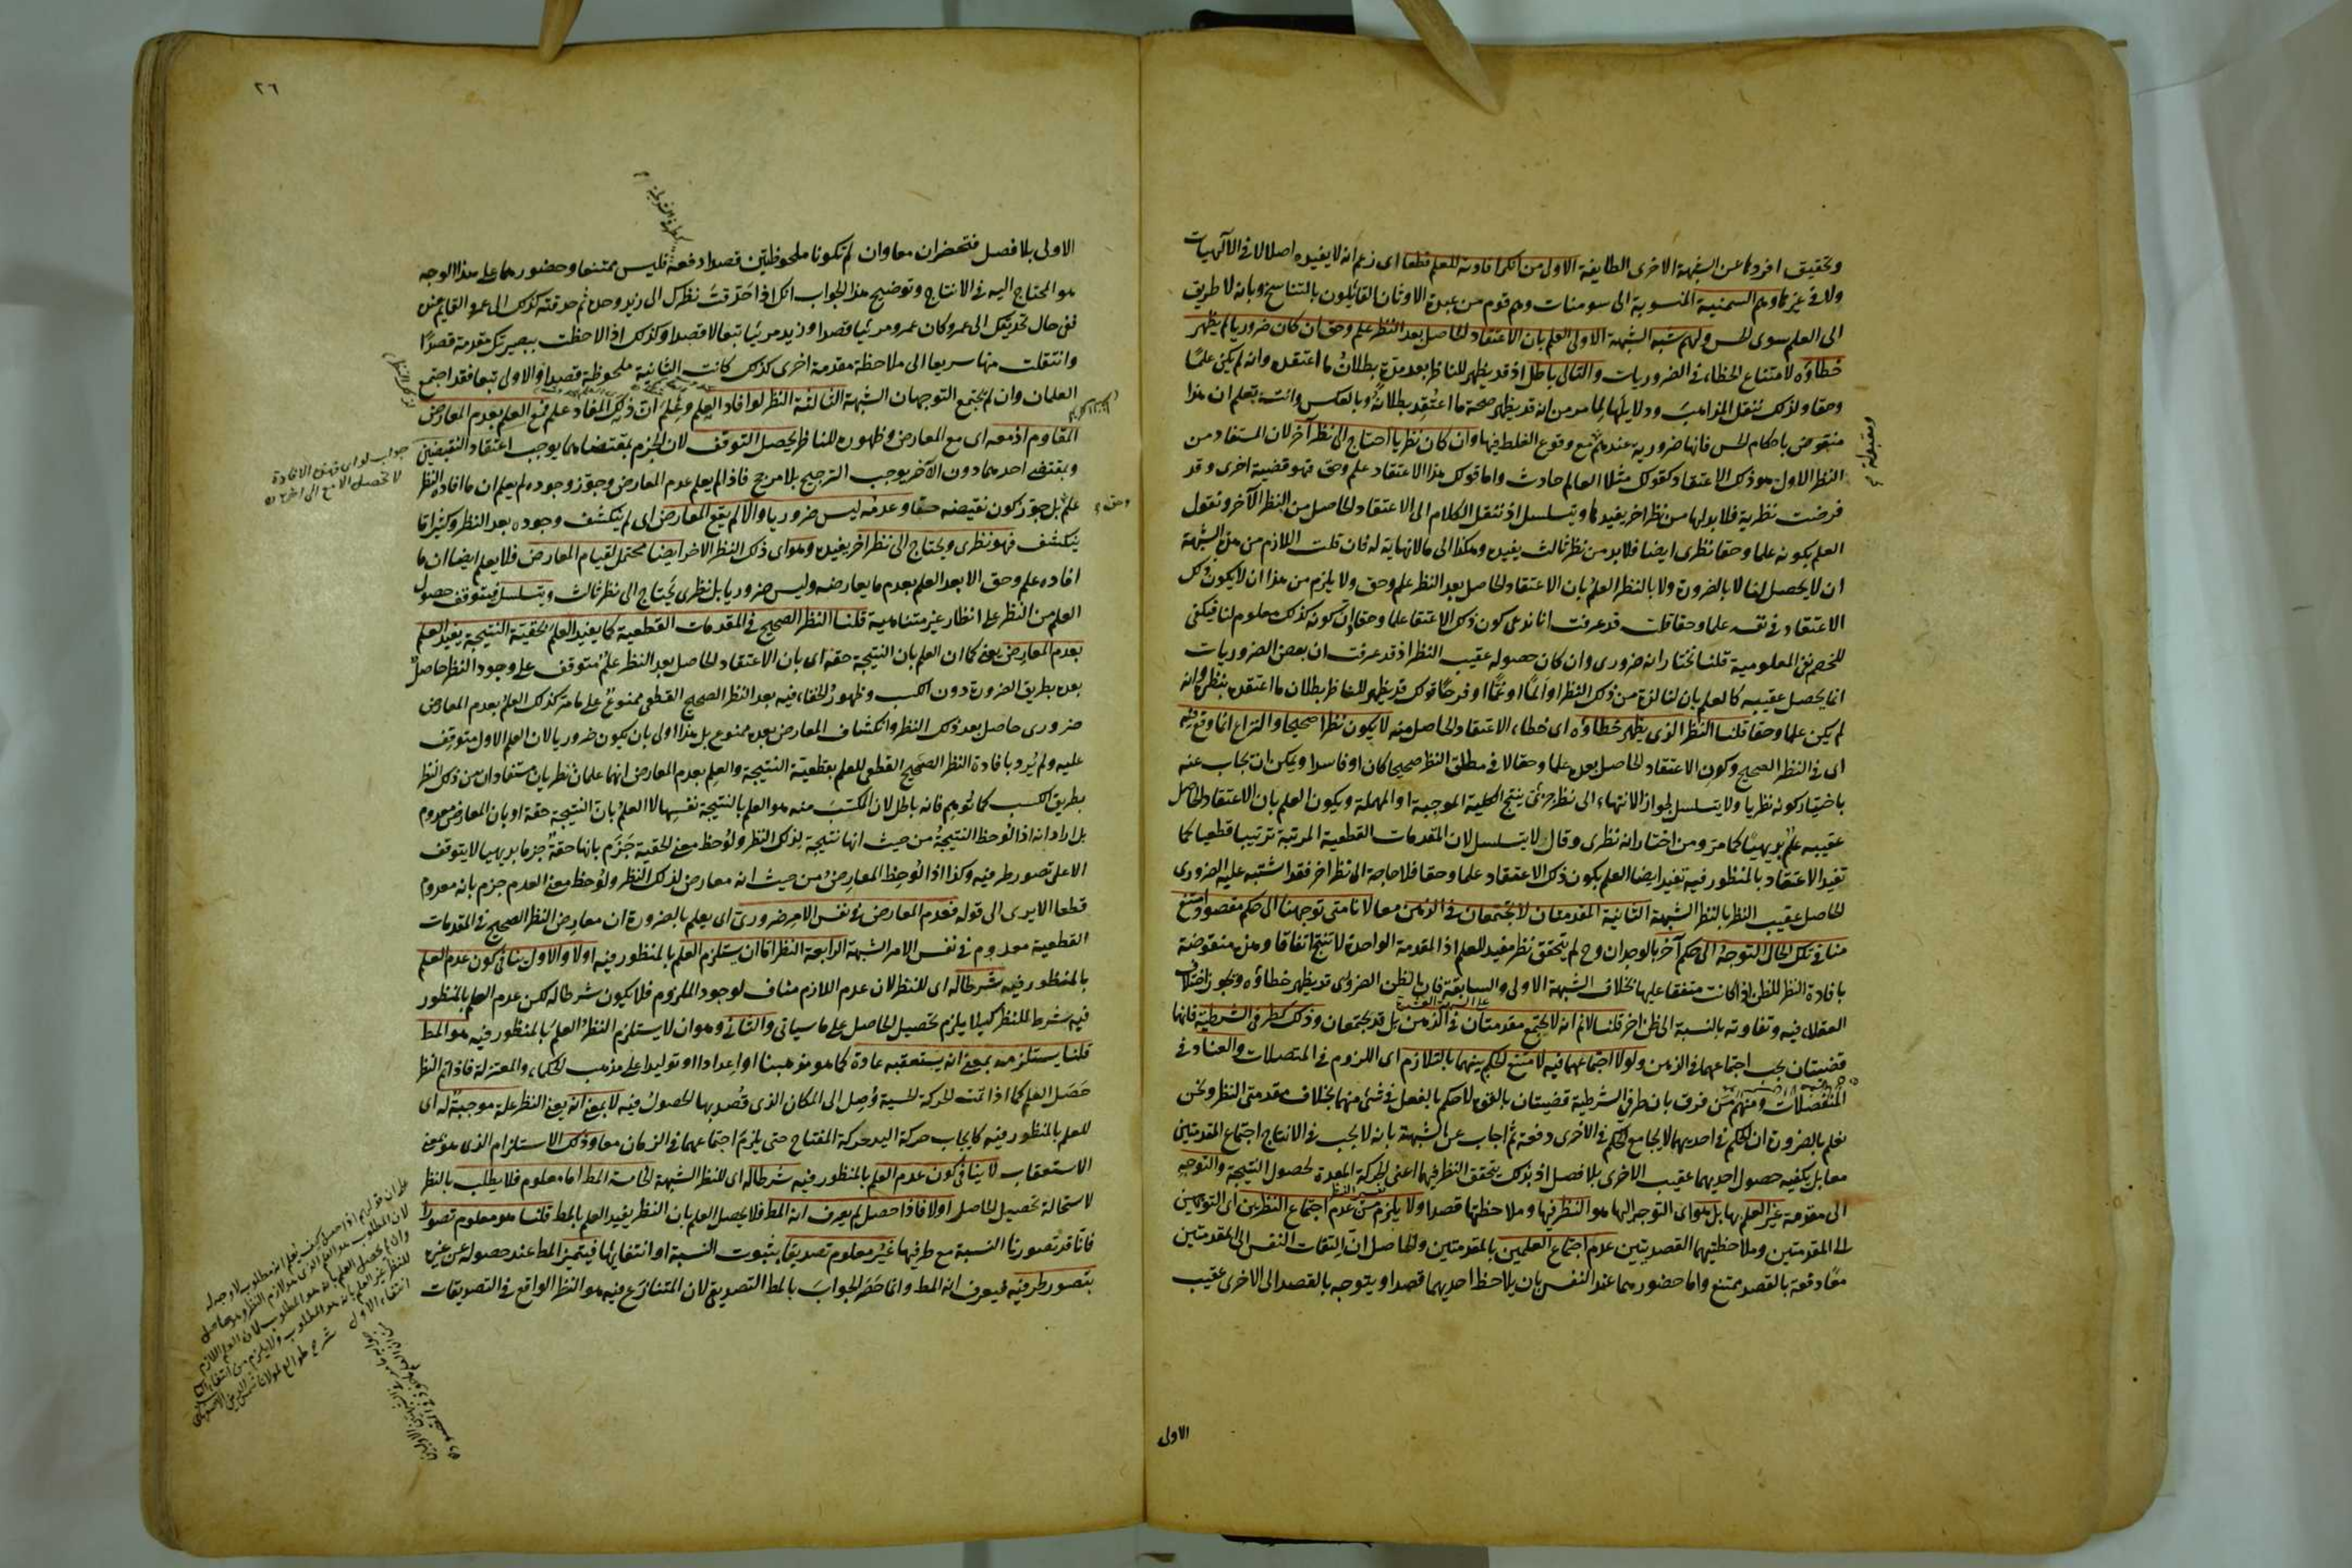 وتحقيق افرد كما عن الشبهة الاخرى الطايفة الاولى من انكر افادته للعلم قطعا اى زعم انه لا يفيده اصلا لا فى الآلهيات
ولا فى غيرها وهم السمنية المنسوبة الى سومنات وهم قوم من عبدة الاوثان القائلون بالتناسخ وبانه لا طريق
الى العلم سوى الحس ولهم شبه الشبهة الاولى العلم بان الاعتقاد الحاصل بعد النظر علم وحق ان كان ضروريا لم يظهر
خطاؤه لامتناع الخطاء فى الضروريات والتالى باطل اذ قد يظهر للناظر بعد مدة بطلان ما اعتقده وانه لم يكن علمًا
وحقا ولذلك تنقل المذاهب ودلايلها لما مر من انه قد يظهر صحة ما اعتقد بطلانه وبالعكس وانت تعلم ان هذا
منقوض باحكام الحس فانها ضرورية عندهم مع وقوع الغلط فيها وان كان نظريا احتاج الى نظر آخر لان المستفاد من
النظر الاول هو ذلك الاعتقاد كقولك مثلا العالم حادث واما قولك هذا الاعتقاد علم وحق فهو قضية اخرى وقد
فرضت نظرية فلا بد لها من نظر اخر يفيدها ويتسلسل اذ ننقل الكلام الى الاعتقاد الحاصل من النظر الآخر ونقول
العلم بكونه علما وحقا نظرى ايضا فلا بد من نظر ثالث يفيده وهكذا الى ما لا نهاية له فان قلت اللازم من هذه الشبهة
ان لا يحصل لنا لا بالضرورة ولا بالنظر العلم بان الاعتقاد الحاصل بعد النظر علم وحق ولا يلزم من هذا ان لا يكون ذلك
الاعتقاد فى نفسه علما وحقا قلت قد عرفت انا ندعى كون ذلك الاعتقا علما وحقا وان كونه كذلك معلوم لنا فيكفى
للخصم نفى المعلومية قلنا نختار انه ضرورى وان كان حصوله عقيب النظر اذ قد عرفت ان بعض الضروريات
انما يحصل عقيبه كالعلم بان لنا لذة من ذلك النظر او المًا او غمًّا او فرحًا قولك قد يظهر للناظر بطلان ما اعتقده بنظره وانه
لم يكن علما وحقا قلنا النظر الذى يظهر خطاؤه اى خطاء الاعتقاد الحاصل منه لا يكون نظرا صحيحا والنزاع انما وقع فيه
اى فى النظر الصحيح وكون الاعتقاد الحاصل بعده علما وحقا لا فى مطلق النظر صحيحا كان او فاسدا ويمكن ان يجاب عنه
باختيار كونه نظريا ولا يتسلسل لجواز الانتهاء الى نظر جزئى ينتج الكلية الموجبة او المهملة ويكون العلم بان الاعتقاد الحاصل
عقيبه علم بديهيًا كما مر ومن اختار انه نظرى وقال لا يتسلسل لان المقدمات القطعية المرتبة ترتيبا قطعيا كما
تفيد الاعتقاد بالمنظور فيه تفيد ايضا العلم بكون ذلك الاعتقاد علما وحقا فلا حاجة الى نظر اخر فقد اشتبه عليه الضرورى
الحاصل عقيب النظر بالنظر الشبهة الثانية المقدمتان لا تجتمعان فى الذهن معا لانا متى توجهنا الى حكم مقصود امتنع
منا فى تلك الحال التوجه الى حكم آخر بالوجدان وح لم يتحقق نظر مفيد للعلم اذ المقدمة الواحدة لا تنتج اتفاقا وهذه منقوضة
بافادة النظر للظن اذ كانت متفقا عليها بخلاف الشبهة الاولى والسابقة فان الظن الضرورى قد يظهر خطاؤه ويجوز اختلاف
العقلاء فيه وتفاوته بالنسبة الى ظن اخر قلنا لا نم انه لا يجتمع مقدمتان فى الذهن بل قد يجتمعان وذلك كطرفى الشرطية فانها
قضيتان يجب اجتماعهما فى الذهن ولولا اجتماعهما فيه لامتنع الحكم بينهما بالتلازم اى اللزوم فى المتصلات والعناد فى
المنفصلات ومنهم من فرق بان طرفى الشرطية قضيتان بالقوة لا حكم بالفعل فى شئ منهما بخلاف مقدمتى النظر ونحن
نعلم بالضرورة ان الحكم فى احديهما لا يجامع الحكم فى الاخرى دفعة ثم اجاب عن الشبهة بانه لا يجب فى الانتاج اجتماع المقدمتين
معا بل يكفيه حصول احديهما عقيب الاخرى بلا فصل اذ بذلك يتحقق النظر فيهما اعنى الحركة المعدة لحصول النتيجة والتوجه
الى مقدمة غير العلم بها بل هو اى التوجه اليها هو النظر فيها وملاحظتها قصدا ولا يلزم من عدم اجتماع النظرين اى التوجهين
الى المقدمتين وملاحظتيهما القصديتين عدم اجتماع العلمين بالمقدمتين والحاصل ان التفات النفس الى المقدمتين
معًا دفعة بالقصد ممتنع واما حضورهما عند النفس بان يلاحظ احديهما قصدا ويتوجه بالقصد الى الاخرى عقيب
الاولى
٢٦
الاولى بلا فصل فتحضران معا وان لم تكونا ملحوظتين قصدا دفعة فليس ممتنعا وحضورهما على هذا الوجه
هو المحتاج اليه فى الانتاج وتوضيح هذا الجواب انك اذا حدّقتَ نظرك الى زيد وحده ثم حدقته كذلك الى عمرو القايم عنده
ففى حال تحديقك الى عمرو كان عمرو مرئيا قصدا وزيد مرئيا تبعا لا قصدا وكذلك اذا لاحظت ببصيرتك مقدمة قصدًا
وانتقلت منها سريعا الى ملاحظة مقدمة اخرى كذلك كانت الثانية ملحوظة قصدا والاولى تبعا فقد اجتمع
العلمان وان لم يجتمع التوجهان الشبهة الثالثة النظر لو افاد العلم وعُلم انّ ذلك المفاد علم فمع العلم بعدم المعارض
المقاوم اذ معه اى مع المعارض وظهوره للناظر يحصل التوقف لان الجزم بمقتضاهما يوجب اعتقاد النقيضين
وبمقتضى احدهما دون الآخر يوجب الترجيح بلا مرجح فاذا لم يعلم عدم المعارض وجوّز وجوده لم يعلم ان ما افاده النظر
علم بل جوّز كون نقيضه حقا وعدمُه ليس ضروريا والا لم يقع المعارض اى لم ينكشف وجوده بعد النظر وكثيرا ما
ينكشف فهو نظرى ويحتاج الى نظر اخر يفيده وهو اى ذلك النظر الاخر ايضا محتمل لقيام المعارض فلا يعلم ايضا ان ما
افاده علم وحق الا بعد العلم بعدم ما يعارضه وليس ضروريا بل نظرى يحتاج الى نظر ثالث ويتسلسل فيتوقف حصول
العلم من النظر على انظار غير متناهية قلنا النظر الصحيح فى المقدمات القطعية كما يفيد العلم بحقية النتيجة يفيد العلم
بعدم المعارض يعنى كما ان العلم بان النتيجة حقة اى بان الاعتقاد الحاصل بعد النظر علم متوقف على وجود النظر حاصلٌ
بعده بطريق الضرورة دون الكسب وظهور الخفاء فيه بعد النظر الصحيح القطعى ممنوعٌ على ما مر كذلك العلم بعدم المعارض
ضرورى حاصل بعد ذلك النظر وانكشاف المعارض بعده ممنوع بل هذا اولى بان يكون ضروريا لان العلم الاول متوقف
عليه ولم يُرد بافادة النظر الصحيح القطعى للعلم بقطعية النتيجة والعلم بعدم المعارض انهما علمان نظريان مستفادان من ذلك النظر
بطريق الكسب كما توهم فانه باطل لان المكتسَب منه هو العلم بالنتيجة نفسِها لا العلمُ بان النتيجة حقة او بان المعارض معدوم
بل اراد انه اذا لوحظ النتيجةُ من حيث انها نتيجة لذلك النظر ولُوحظ معنى الحقية جَزَم بانها حقة جزما بديهيا لا يتوقف
الا على تصور طرفيه وكذا اذا لُوحظ المعارض من حيث انه معارض لذلك النظر ولُوحظ معنى العدم جزم بانه معدوم
قطعا الا يرى الى قوله فعدم المعارض فى نفس الامر ضرورى اى يعلم بالضرورة ان معارض النظر الصحيح فى المقدمات
القطعية معدوم فى نفس الامر الشبهة الرابعة النظر اما ان يستلزم العلم بالمنظور فيه اولا والاول ينافى كون عدم العلم
بالمنظور فيه شرطا له اى للنظر لان عدم اللازم مناف لوجود الملزوم فلا يكون شرطا له لكن عدم العلم بالمنظور
فيه شرط للنظر كيلا يلزم تحصيل الحاصل على ما سياتى والثانى وهو ان لا يستلزم النظرُ العلمَ بالمنظور فيه هو المط
قلنا يستلزمه بمعنى انه يستعقبه عادة كما هو مذهبنا او اعدادا او توليدا على مذهب الحكماء والمعتزلة فاذا تم النظر
حَصَل العلم كما اذا تمت الحركة الحسية وُصل الى المكان الذى قُصد بها الحصولُ فيه لا بمعنى انه يعنى النظر علة موجبةٌ له اى
للعلم بالمنظور فيه كايجاب حركة اليد حركة المفتاح حتى يلزم اجتماعهما فى الزمان معا وذلك الاستلزام الذى هو بمعنى
الاستعقاب لا ينافى كون عدم العلم بالمنظور فيه شرطا له اى للنظر الشبهة الخامسة المط اما معلوم فلا يطلب بالنظر
لاستحالة تحصيل الحاصل اولا فاذا حصل لم يعرف انه المط فلا يحصل العلم بان النظر يفيد العلم بالمط قلنا هو معلوم تصورا
فانا قد تصورنا النسبة مع طرفيها غيرُ معلوم تصديقا بثبوت النسبة او انتفائها فيتميز المط عند حصوله عن غيره
بتصور طرفيه فيعرف انه المط وانما حَصَرَ الجوابَ بالمط التصديقى لان المتنازَع فيه هو النظر الواقع فى التصديقات
جواب لو اى فهذه الافادة
لا تحصل الا مع
شرح طوالع لمولانا شمس الدين الاصفهانى